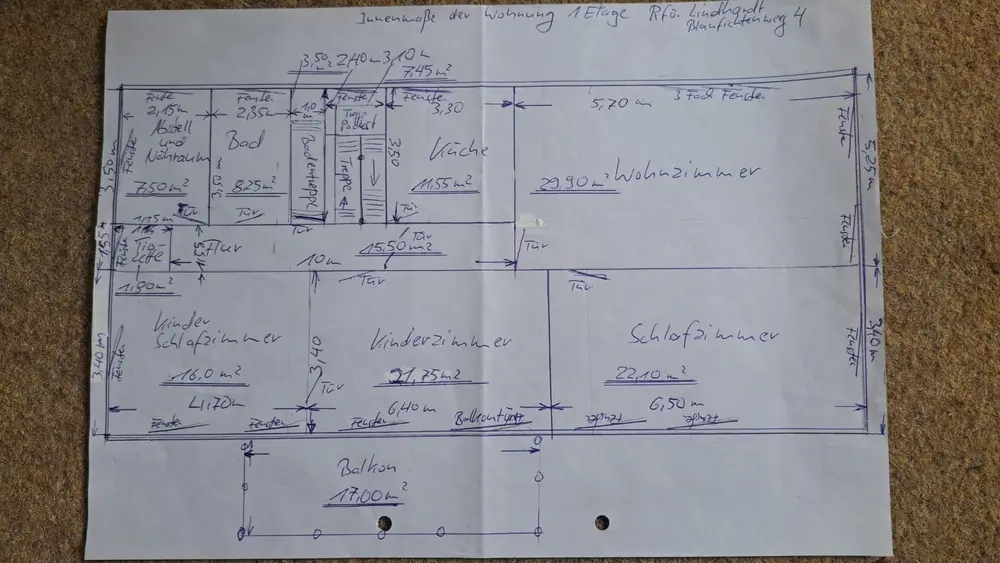 Innenmaße der Wohnung 1 Etage Rfö. Lindhardt
Blaufichtenweg 4
3,50 m
2,40 m
3,10 m
7,45 m²
Fenster
2,15 m
Fenster
2,35 m
1,0
Fenster
Fenster
3,30
5,70 m
3 Fach Fenster
Abstell
und
Nähraum
7,50 m²
Fenster
3,50 m
Bad
8,25 m²
3,50 m
Bodentreppe
Podest
Treppe
3,50
Küche
11,55 m²
Wohnzimmer
29,90 m²
Fenster
5,25 m
Fenster
Tür
Tür
Tür
Tür
Tür
Tür
1,15 m
1,55 m
Fenster
Flur
1,55
15,50 m²
10 m
1,80 m²
Tür
Tür
Kinder
Schlafzimmer
16,0 m²
4,70 m
Fenster
Fenster
Fenster
3,40 m
3,40
Tür
Kinderzimmer
21,75 m²
6,40 m
Fenster
Balkontür
Schlafzimmer
22,10 m²
6,50 m
Fenster
3,40 m
Balkon
17,00 m²